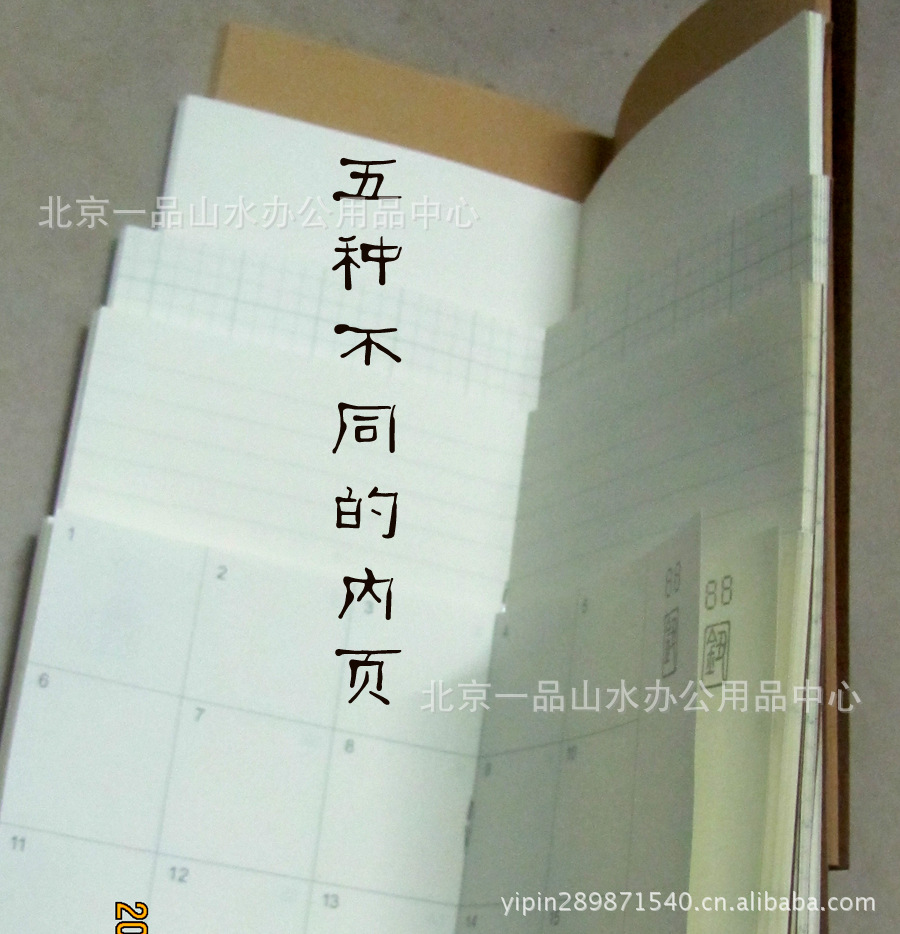 五种不同的内页
北京一品山水办公用品中心
1
2
3
4
5
6
7
8
9
10
11
12
13
14
15
88
88
北京一品山水办公用品中心
yipin289871540.cn.alibaba.com
20